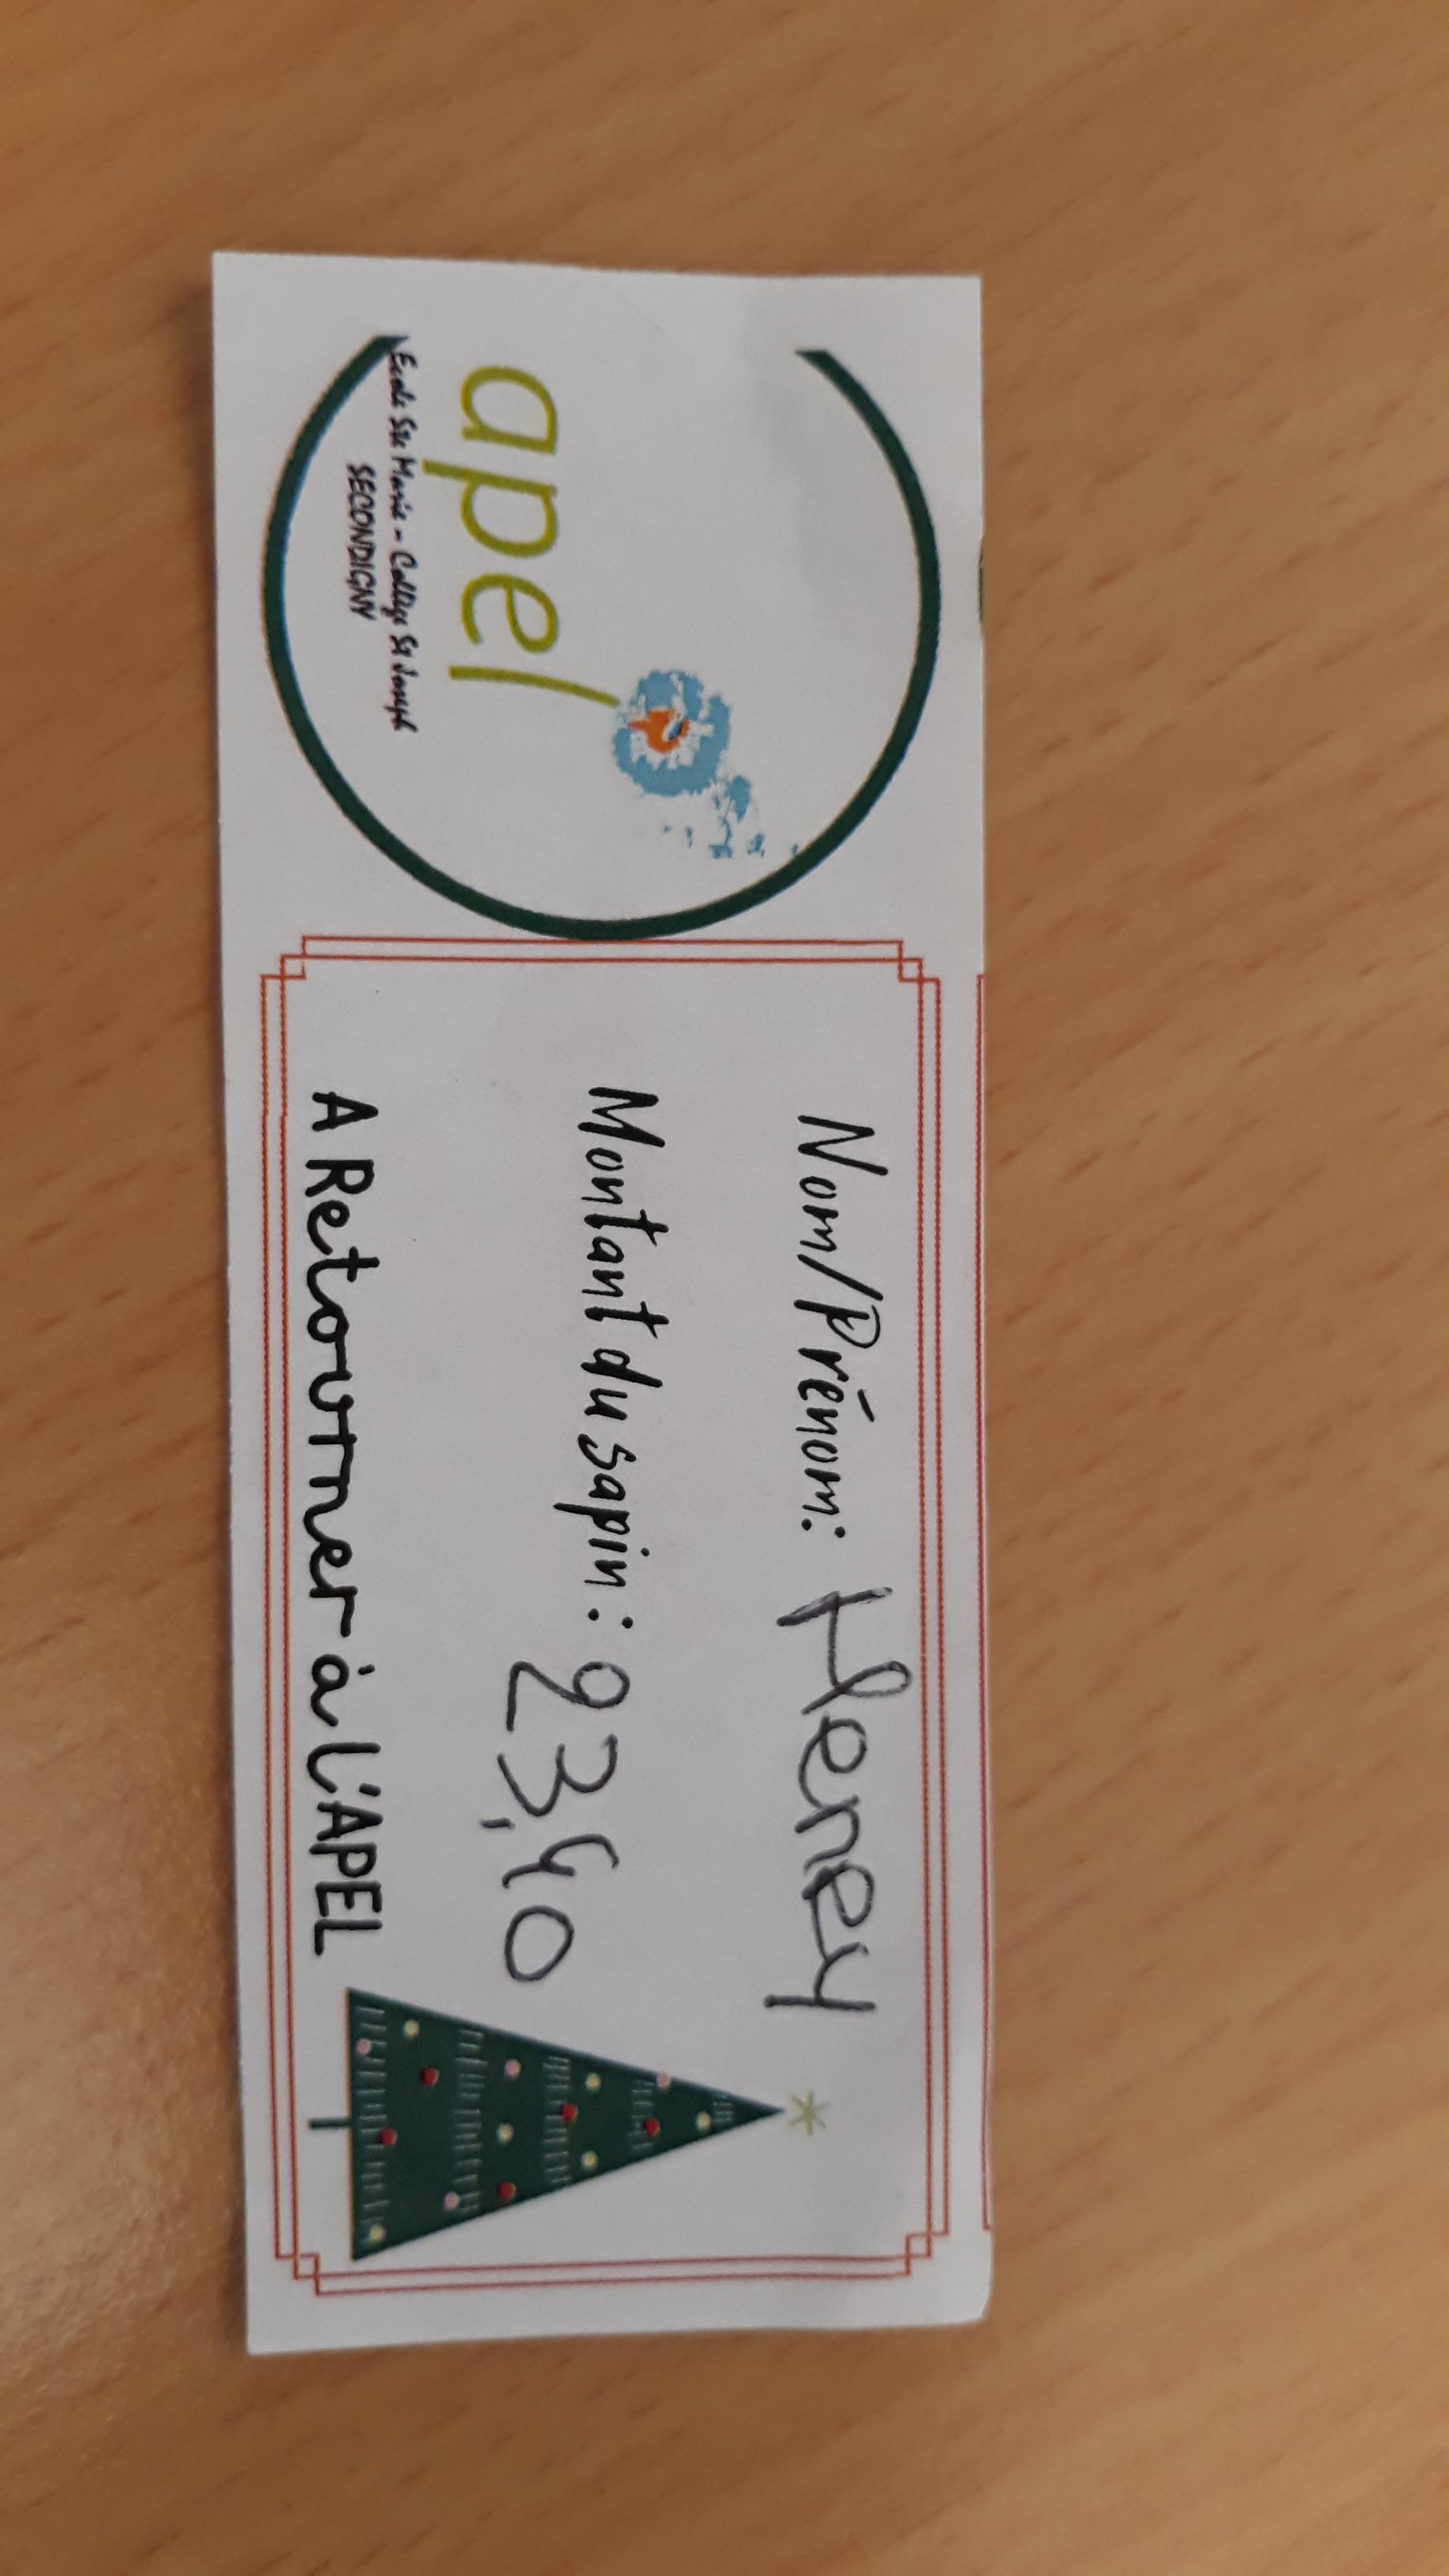 apel
Ecole Ste Marie - Collège St Joseph
SECONDIGNY
Nom/Prénom: Heney
Montant du sapin : 23,40
A Retourner à l'APEL